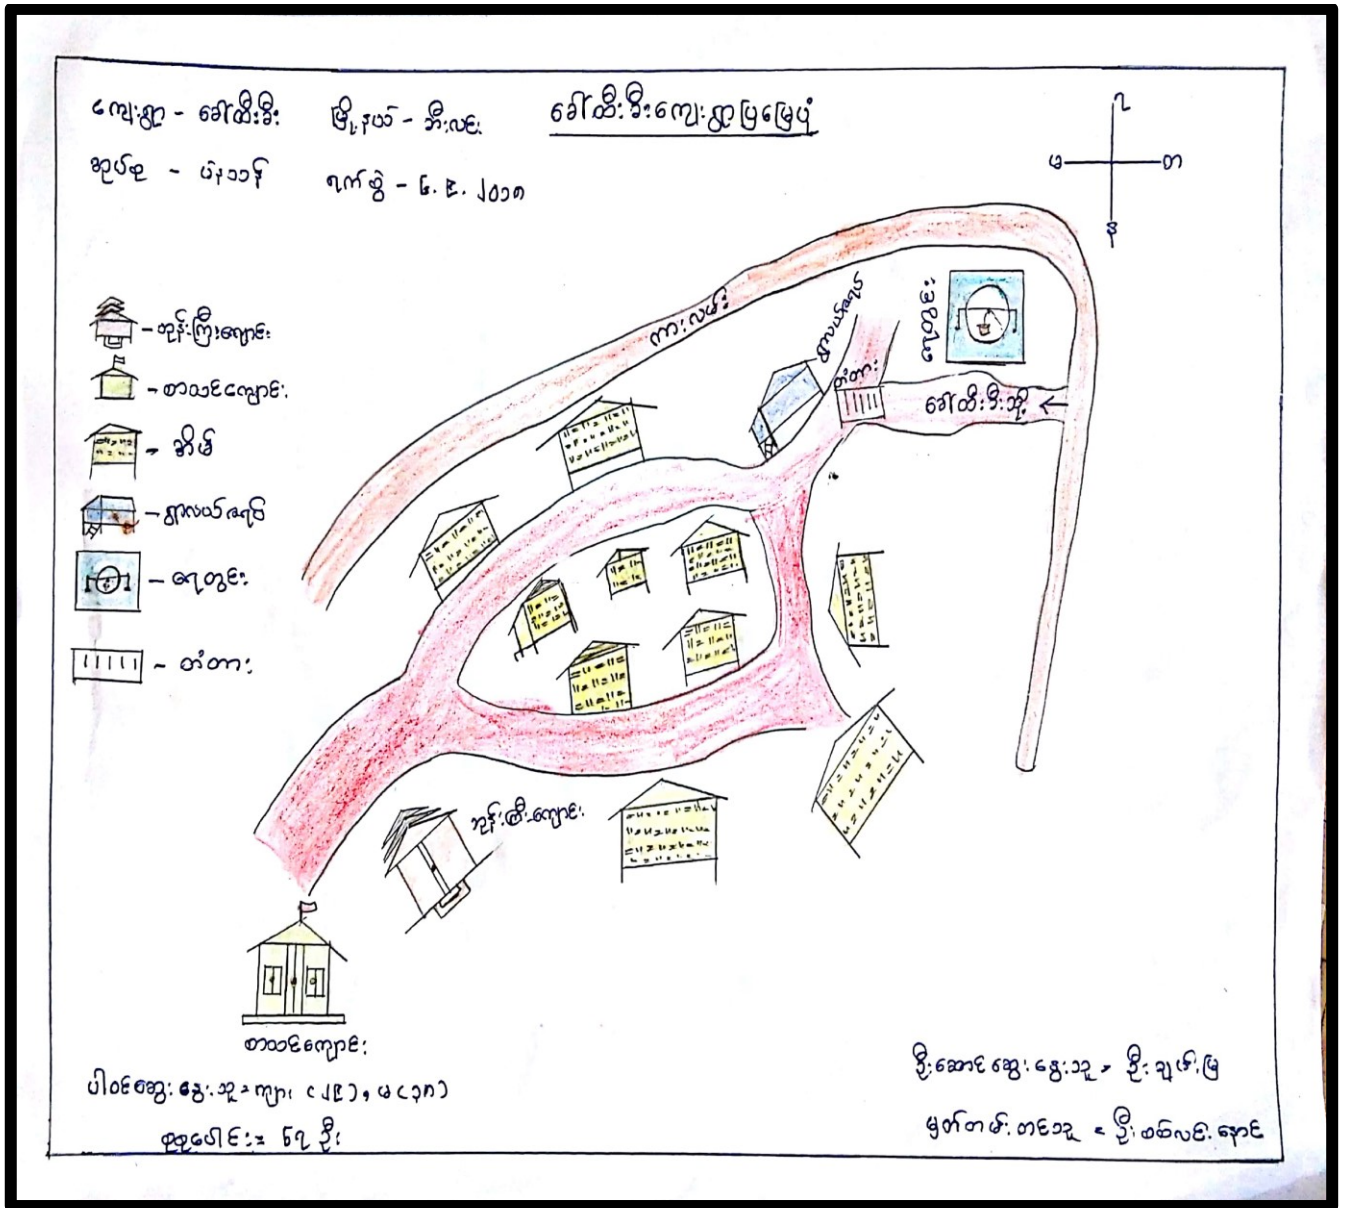 ကျေးရွာ - ခေါ်ထီးခီး မြို့နယ် - ဘီးလင်း ခေါ်ထီးခီးကျေးရွာပြမြေပုံ
အုပ်စု - ပဲနသန် ရက်စွဲ - ၆. ၉. ၂၀၁၈
ရ
မ
တ
န
ဘုန်းကြီးကျောင်း
စာသင်ကျောင်း
အိမ်
ရွာလယ်ဇရပ်
ရေတွင်း
တံတား
ကားလမ်း
ရွာလယ်ဇရပ်
ရေတွင်း
တံတား
ခေါ်ထီးခီးသို့ ←
ဘုန်းကြီးကျောင်း
စာသင်ကျောင်း
ပါဝင်ဆွေးနွေးသူ = ကျား (၂၉)၊ မ (၃၈)
စုစုပေါင်း = ၆၇ ဦး
ဦးဆောင်ဆွေးနွေးသူ = ဦးချမ်းမြ
မှတ်တမ်းတင်သူ = ဦးစစ်လင်းနောင်